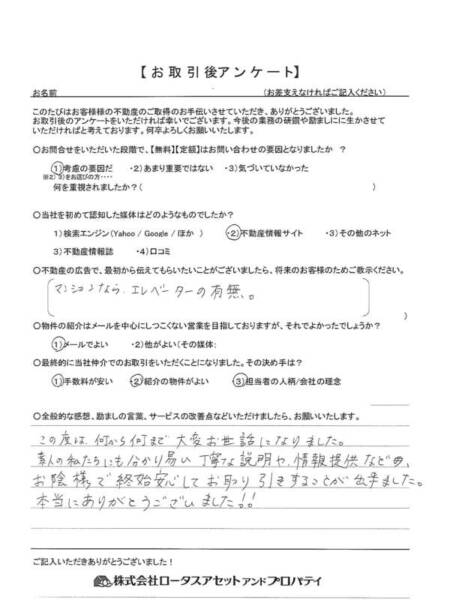 【お取引後アンケート】
お名前　　　　　　　　　　　　　(お差支えなければご記入ください)
このたびはお客様様の不動産のご取得のお手伝いさせていただき、ありがとうございました。
お取引後のアンケートをいただければ幸いでございます。今後の業務の研鑽や励ましにに生かさせて
いただければと考えております。何卒よろしくお願いいたします。
〇お問合せをいただいた段階で、【無料】【定額】はお問い合わせの要因となりましたか　?
1)考慮の要因だ　・2)あまり重要ではない　・3)気づいていなかった
※2）3)をお選びの方・・・・
何を重視されましたか？(　　　　　　　　　　)
〇当社を初めて認知した媒体はどのようなものでしたか？
1)検索エンジン(Yahoo / Google / ほか　)　・2)不動産情報サイト　・3)その他のネット
3)不動産情報誌　・4)口コミ
〇不動産の広告で、最初から伝えてもらいたいことがございましたら、将来のお客様のためご教示ください。
マンションなら、エレベーターの有無。
)
〇物件の紹介はメールを中心にしつこくない営業を目指しておりますが、それでよかったでしょうか？
1)メールでよい　・2)他がよい(その媒体:　　　　　　)
〇最終的に当社仲介でのお取引をいただくことになりました。その決め手は？
1)手数料が安い　・2)紹介の物件がよい　・3)担当者の人柄/会社の理念
〇全般的な感想、励ましの言葉、サービスの改善点などいただけましたら、お願いいたします。
この度は、何から何まで大変お世話になりました。
素人の私たちにも分かり易い丁寧な説明や、情報提供など
お陰様で終始安心してお取り引きすることが出来ました。
本当にありがとうございました!!
ご記入いただきありがとうございました！
株式会社ロータスアセットアンドプロパティ